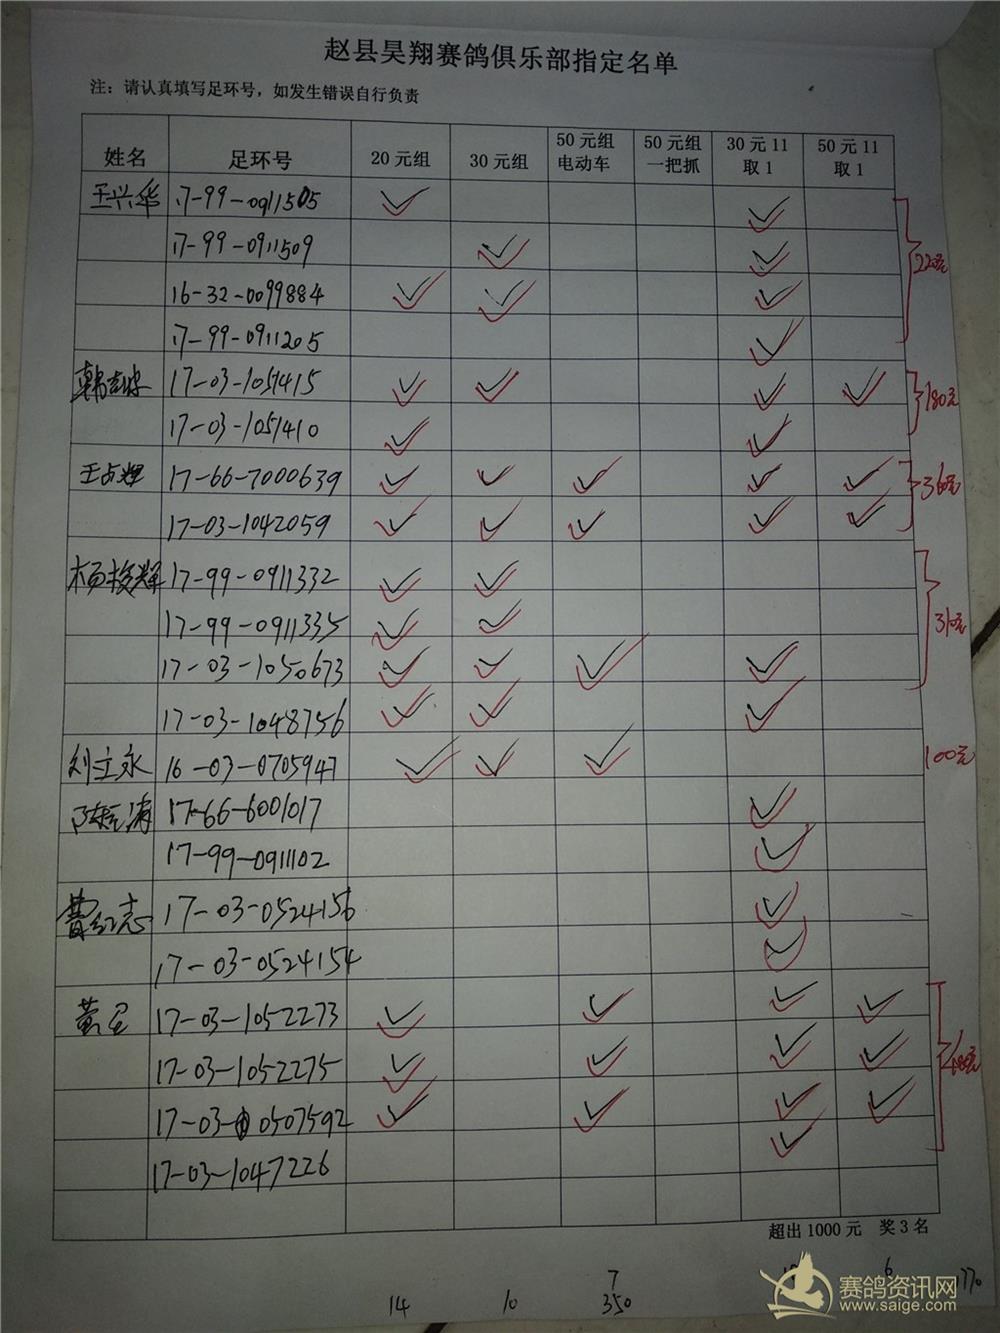 赵县昊翔赛鸽俱乐部指定名单
注：请认真填写足环号，如发生错误自行负责
姓名 足环号 20元组 30元组 50元组电动车 50元组一把抓 30元11取1 50元11取1
王兴华 17-99-0911505 ✓ ✓
17-99-0911509 ✓ ✓
220元
16-32-0099884 ✓ ✓ ✓
17-99-0911205 ✓
17-03-1051415 ✓ ✓ ✓ ✓
180元
17-03-1051410 ✓ ✓
王占辉 17-66-7000639 ✓ ✓ ✓ ✓ ✓
360元
17-03-1042059 ✓ ✓ ✓ ✓ ✓
杨梭辉 17-99-0911332 ✓ ✓
17-99-0911335 ✓ ✓
310元
17-03-1050673 ✓ ✓ ✓ ✓
17-03-1048756 ✓ ✓ ✓
刘立永 16-03-0705947 ✓ ✓ ✓
100元
17-66-6001017 ✓
17-99-0911102 ✓
曹红志 17-03-0524156 ✓
17-03-0524154 ✓
17-03-1052273 ✓ ✓ ✓ ✓
17-03-1052275 ✓ ✓ ✓ ✓
480元
17-03-0507592 ✓ ✓ ✓ ✓
17-03-1047226 ✓
超出1000元 奖3名
14 10 7 6
350
赛鸽资讯网
www.saige.com